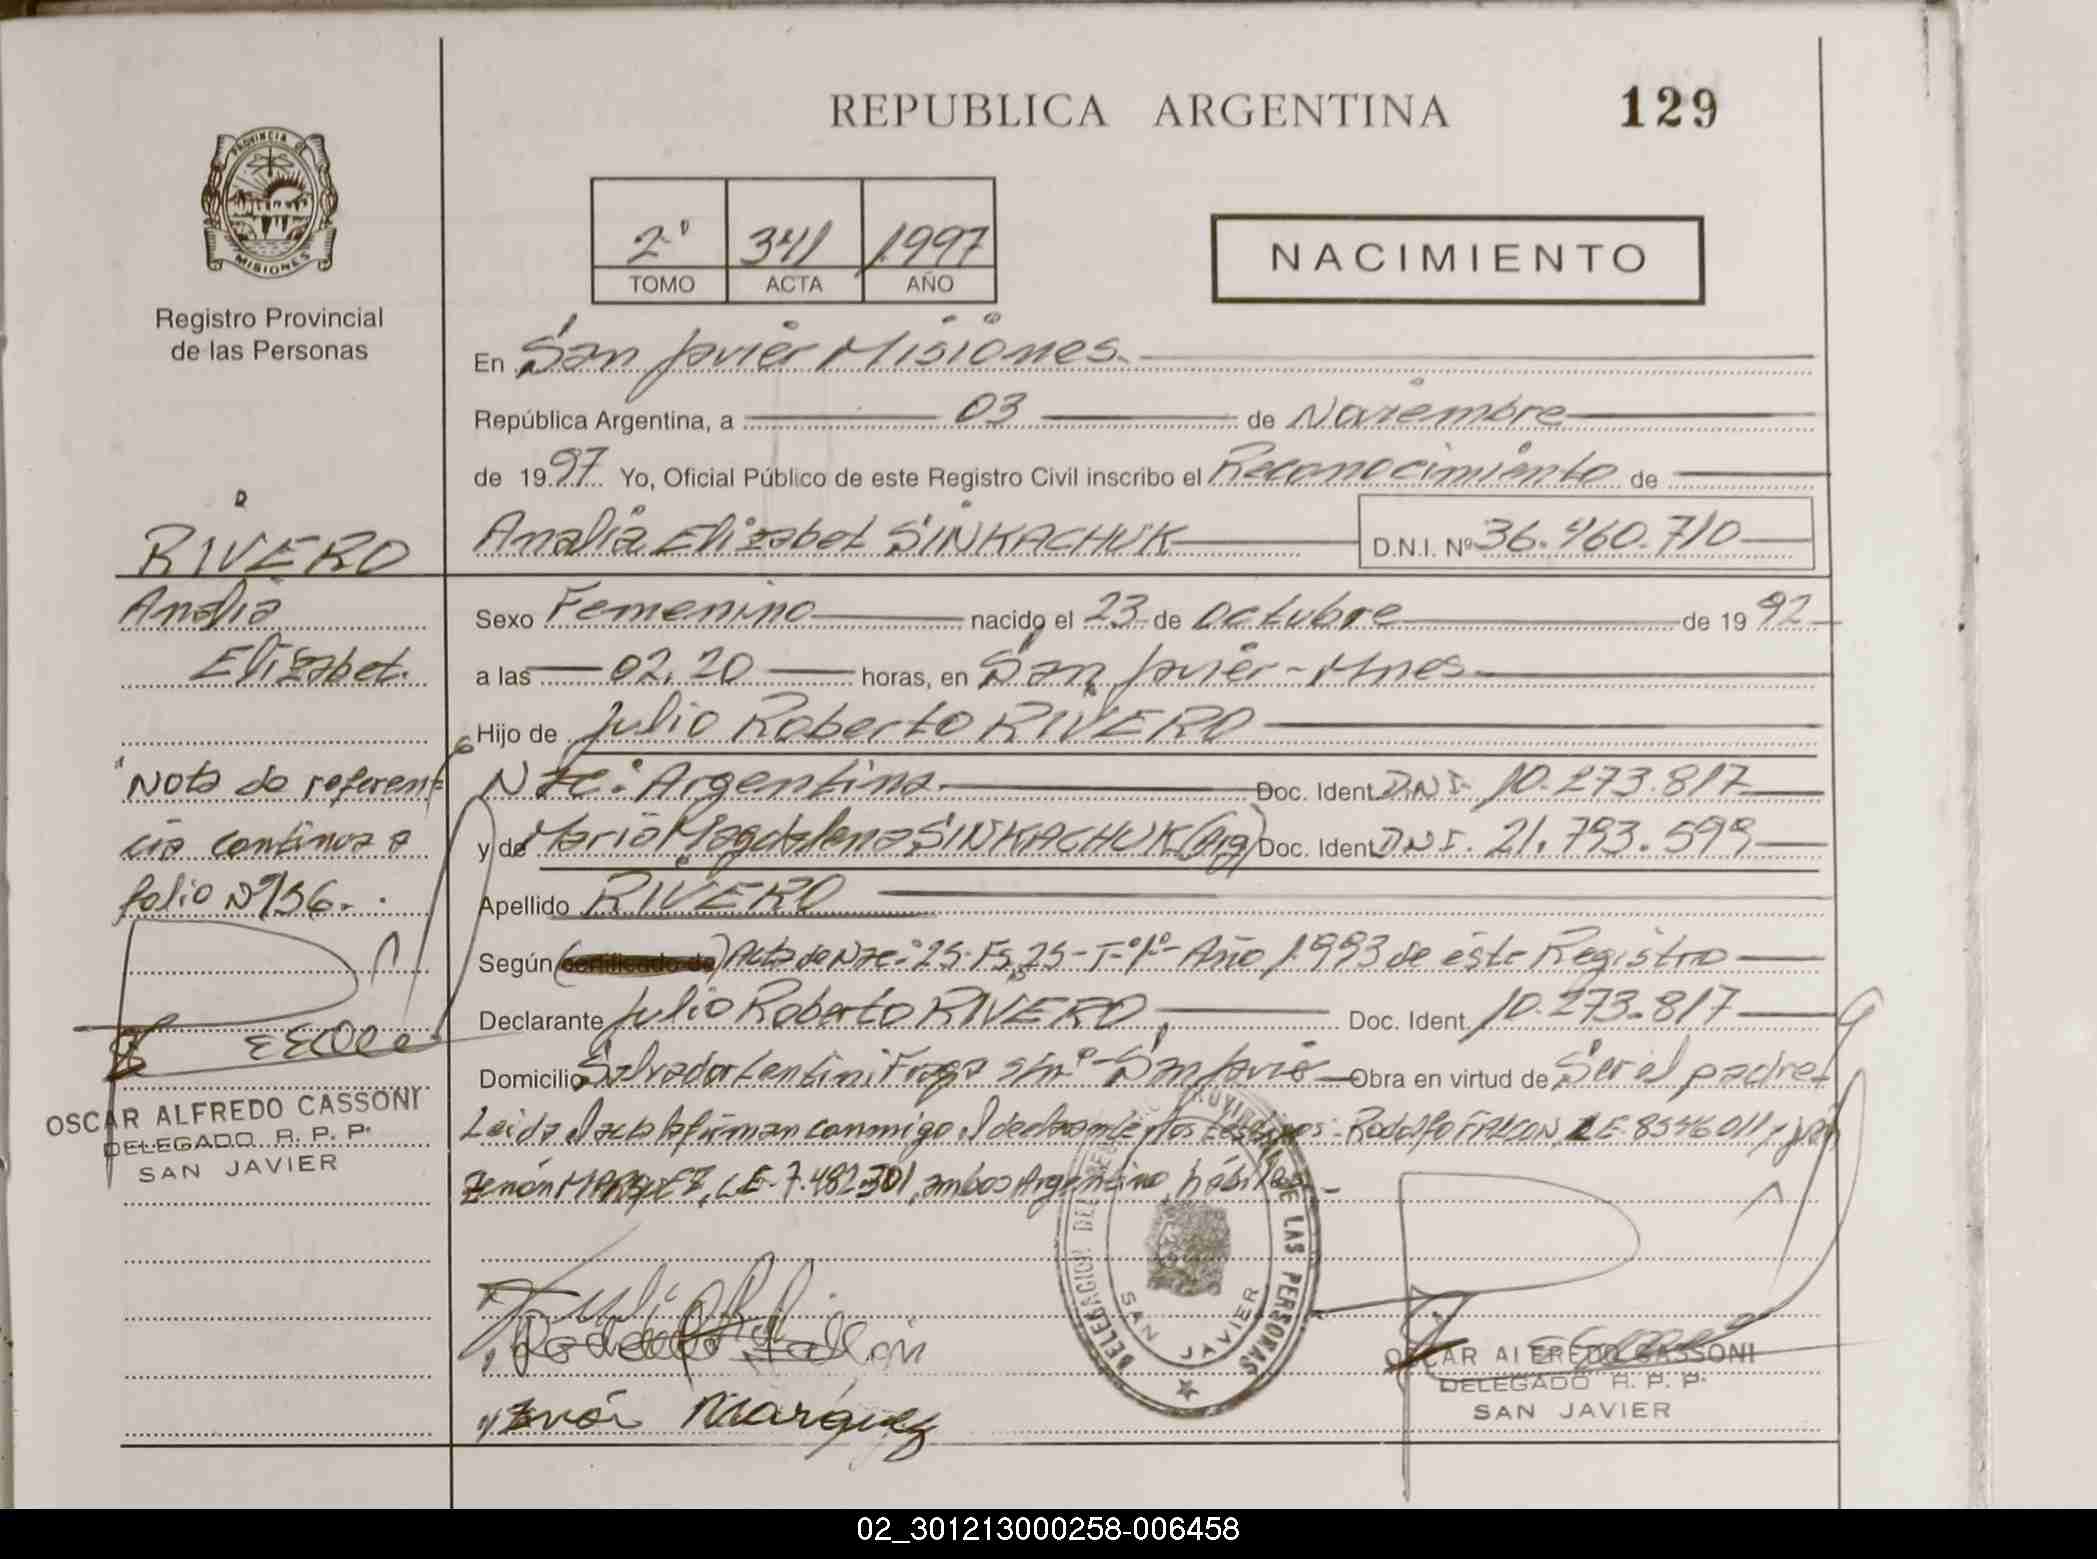 REPUBLICA ARGENTINA
129
PROVINCIA DE
MISIONES
Registro Provincial
de las Personas
2º 341 1997
TOMO ACTA AÑO
NACIMIENTO
En San Javier Misiones.
República Argentina, a 03 de Noviembre
de 1997 Yo, Oficial Público de este Registro Civil inscribo el Reconocimiento de
Analia Elizabet SINKACHUK D.N.I. Nº 36.460.710
RIVERO
Analia
Elizabet.
Nota de referen
cia continua a
folio Nº 136.
OSCAR ALFREDO CASSONI
DELEGADO R. P. P.
SAN JAVIER
Sexo Femenino nacido el 23 de octubre de 1992
a las 02,20 horas, en San Javier - Mnes
Hijo de Julio Roberto RIVERO
Nac: Argentina Doc. Ident D.N.I. 10.273.817
y de Maria Magdalena SINKACHUK (Arg) Doc. Ident D.N.I. 21.793.599
Apellido RIVERO
Según (certificado de) Acta de Nac: 25-Fs 25-Tº 1º- Año 1993 de este Registro
Declarante Julio Roberto RIVERO Doc. Ident. 10.273.817
Domicilio Salvador Lentini Fraga s/nº - San Javier Obra en virtud de Ser el padre
Leida el acta la firman conmigo, el declarante y los testigos: Rodolfo FALCON, LE-8546011 y
Zenón MARQUEZ, LE-7.482.301, ambos Argentino, hábiles.-
Rodolfo Falcon
Zenón Márquez
DELEGACION DEL REGISTRO PROVINCIAL DE LAS PERSONAS
SAN JAVIER
OSCAR ALFREDO CASSONI
DELEGADO R. P. P.
SAN JAVIER
02_301213000258-006458